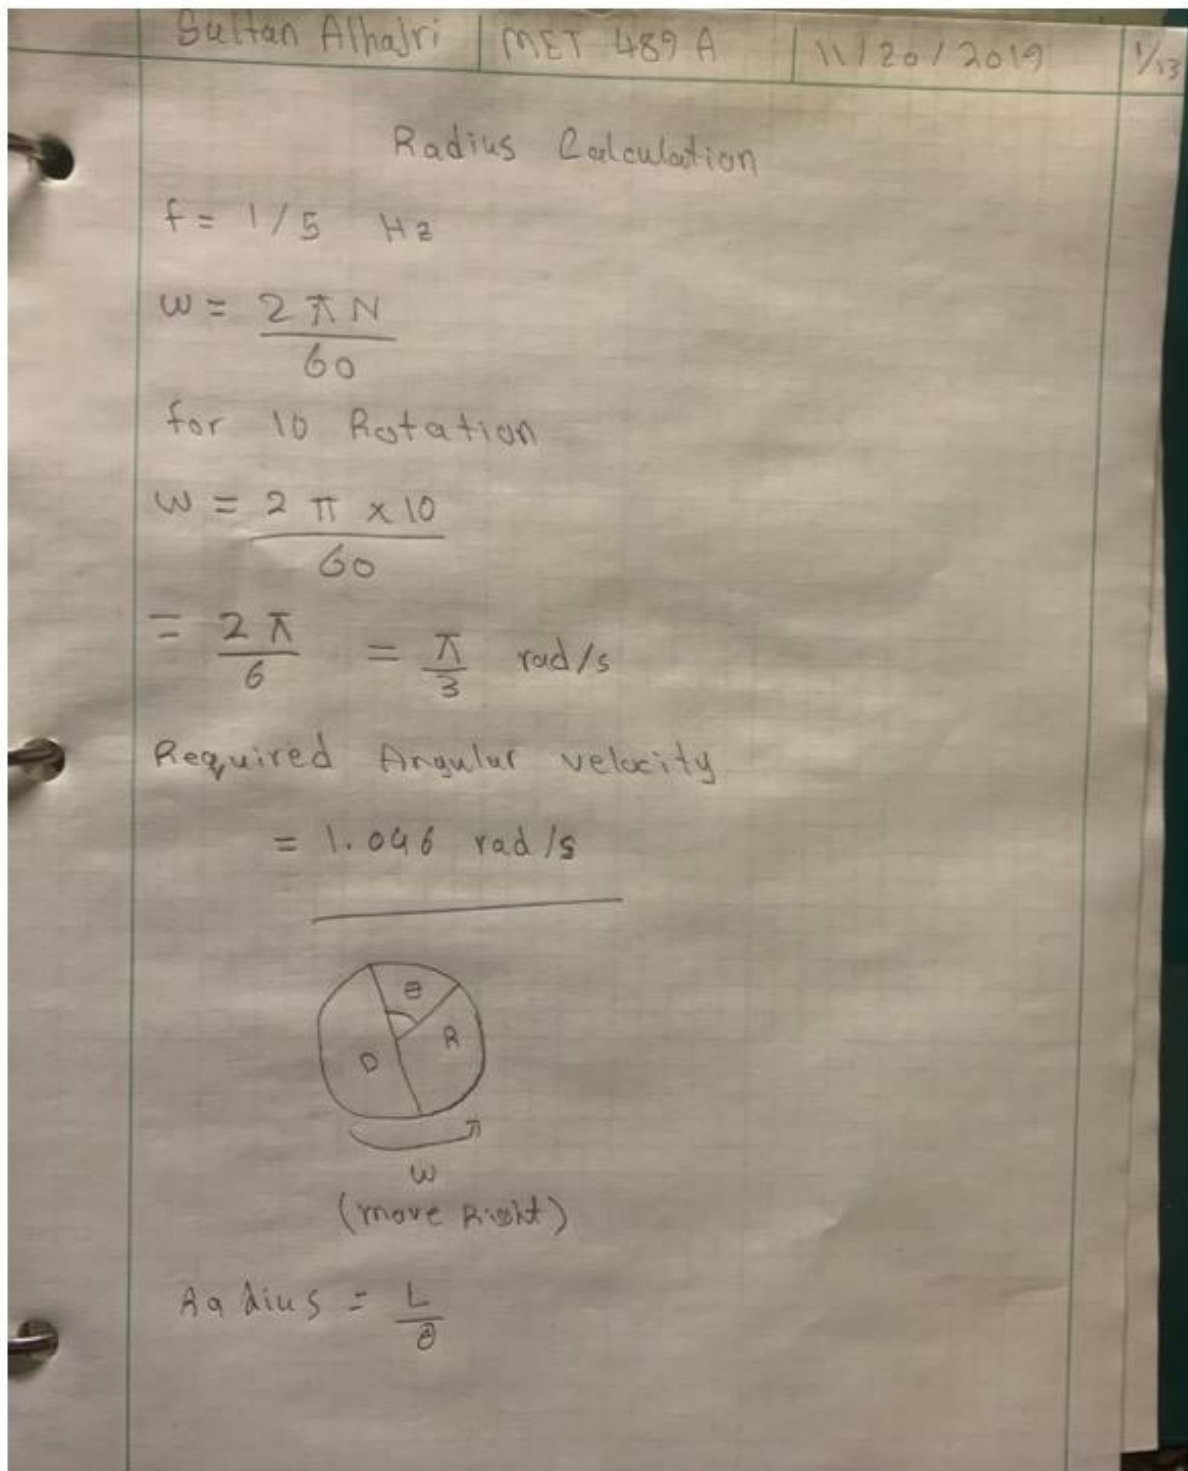 Sultan Alhajri | MET 489 A | 11/20/2019 | 1/13
Radius Calculation
f = 1/5 Hz
w = 2πN
60
for 10 Rotation
w = 2π x 10
60
= 2π/6 = π/3 rad/s
Required Angular velocity
= 1.046 rad/s
θ
R
D
w
(move Right)
Radius = L/θ